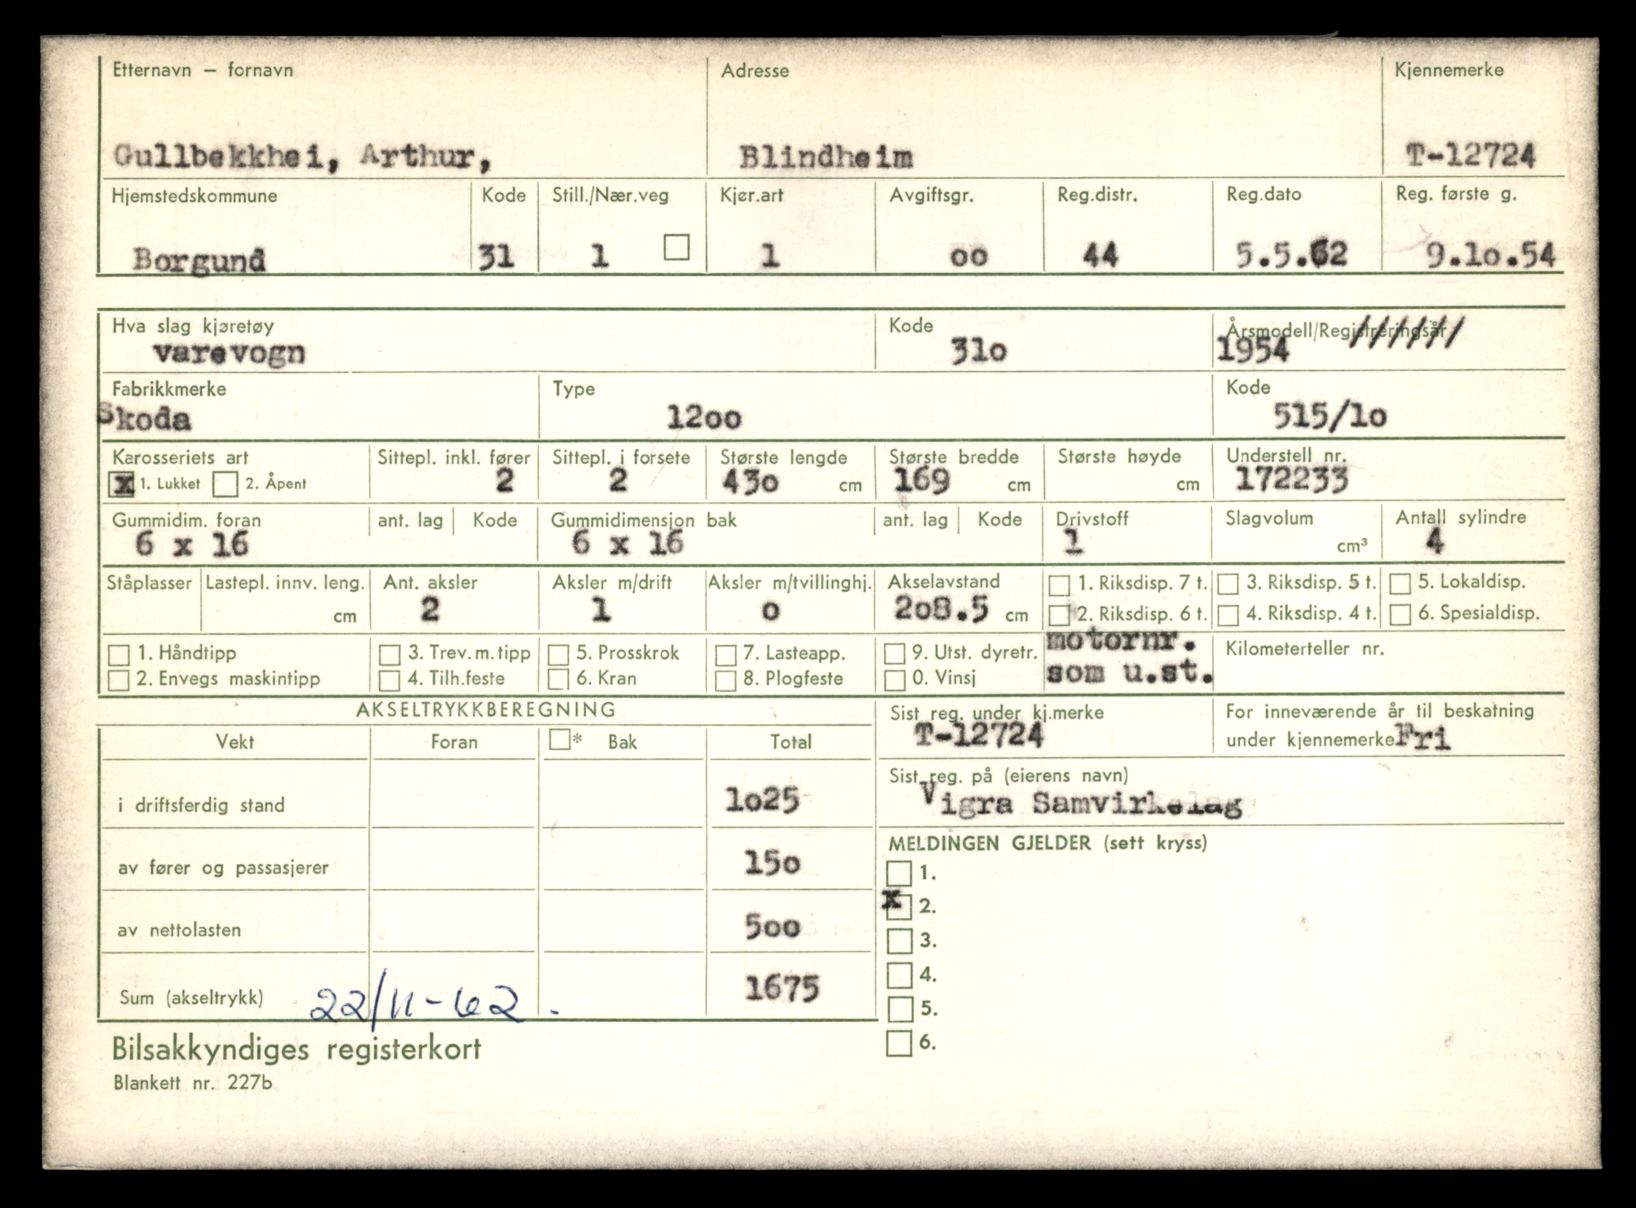 Etternavn — fornavn Adresse Kjennemerke
Gullbekkhei, Arthur, Blindheim T-12724
Hjemstedskommune Kode Still./Nær.veg Kjør.art Avgiftsgr. Reg.distr. Reg.dato Reg. første g.
Borgund 31 1 1 oo 44 5.5.62 9.1o.54
Hva slag kjøretøy Kode Årsmodell/Registreringsår
varevogn 31o 1954 //////
Fabrikkmerke Type Kode
Skoda 12oo 515/1o
Karosseriets art Sittepl. inkl. fører Sittepl. i forsete Største lengde Største bredde Største høyde Understell nr.
x 1. Lukket 2. Åpent 2 2 43o cm 169 cm cm 172233
Gummidim. foran ant. lag Kode Gummidimensjon bak ant. lag Kode Drivstoff Slagvolum Antall sylindre
6 x 16 6 x 16 1 cm³ 4
Ståplasser Lastepl. innv. leng. Ant. aksler Aksler m/drift Aksler m/tvillinghj. Akselavstand 1. Riksdisp. 7 t. 3. Riksdisp. 5 t. 5. Lokaldisp.
cm 2 1 o 2o8.5 cm 2. Riksdisp. 6 t. 4. Riksdisp. 4 t. 6. Spesialdisp.
1. Håndtipp 3. Trev.m.tipp 5. Prosskrok 7. Lasteapp. 9. Utst. dyretr. motornr. Kilometerteller nr.
2. Envegs maskintipp 4. Tilh.feste 6. Kran 8. Plogfeste 0. Vinsj som u.st.
AKSELTRYKKBEREGNING Sist reg. under kj.merke For inneværende år til beskatning
Vekt Foran * Bak Total T-12724 under kjennemerke Fri
Sist reg. på (eierens navn)
i driftsferdig stand 1o25 Vigra Samvirkelag
MELDINGEN GJELDER (sett kryss)
av fører og passasjerer 15o 1.
x 2.
av nettolasten 5oo 3.
4.
Sum (akseltrykk) 22/11-62. 1675 5.
6.
Bilsakkyndiges registerkort
Blankett nr. 227b